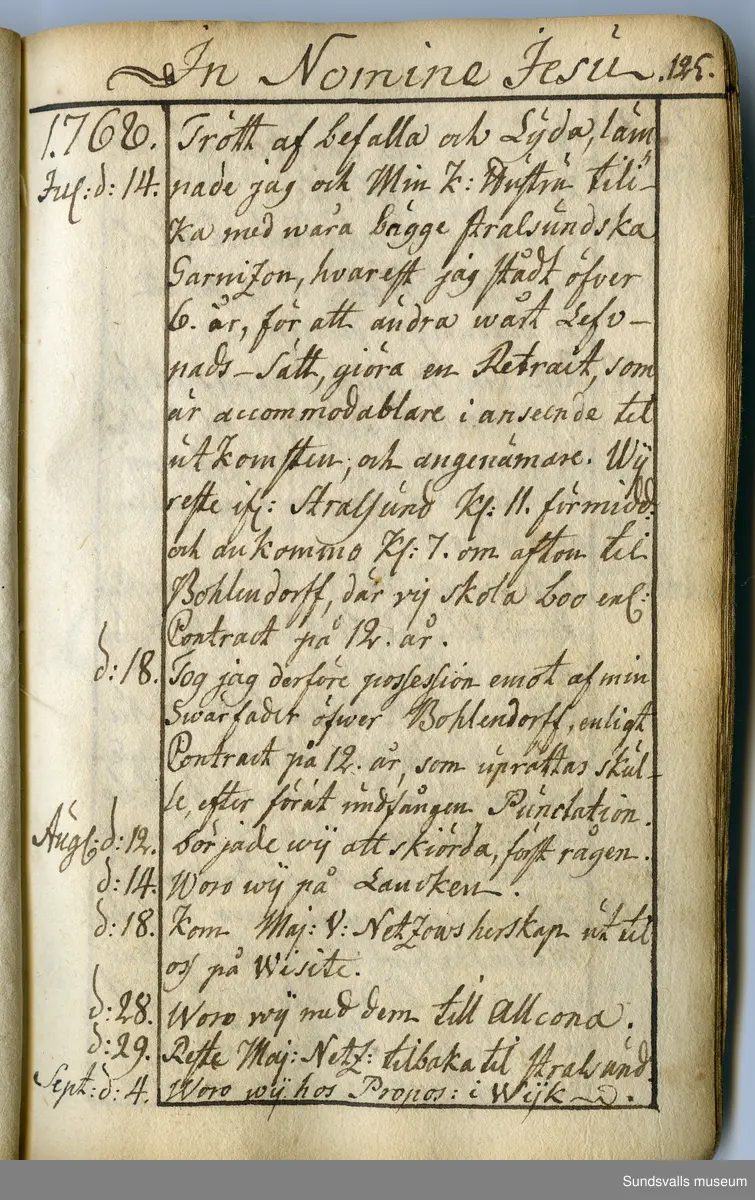 In Nomine Jesu 125.
1768. Trött af befalla och Lÿda, läm
Jul: d: 14. nade jag och Min K: Hustru tili-
ka med wåra bägge stralsundska
Garnizon, hvarest jag ståдt öfver
6. år, för att ändra wårt Lefv-
nads-Sätt, giöra en Retrait, som
är accommodablare i anseende til
utkomsten, och angenämare. Wÿ
reste if: Stralsund Kl: 11. förmidd:
och ankommo Kl: 7. om afton til
Bohlendorff, där vij skola boo enl:
Contract på 12. år.
d: 18. Tog jag derföre possession emot af min
Swärfader öfwer Bohlendorff, enligt
Contract på 12. år, som uprättas skul-
le, efter förut undfången Punctation.
Augl: d: 12. började wÿ att skiörda, först rågen.
d: 14. Woro wÿ på Lancken.
d: 18. Kom Maj: V: Netzows herskap ut til
oss på Wisite.
d: 28. Woro wÿ med dem till Allcona.
d: 29. Reste Maj: Netz: tilbaka til stralsund
Sept: d: 4. Woro wÿ hos Propos: i Wÿk.
Sundsvalls museum